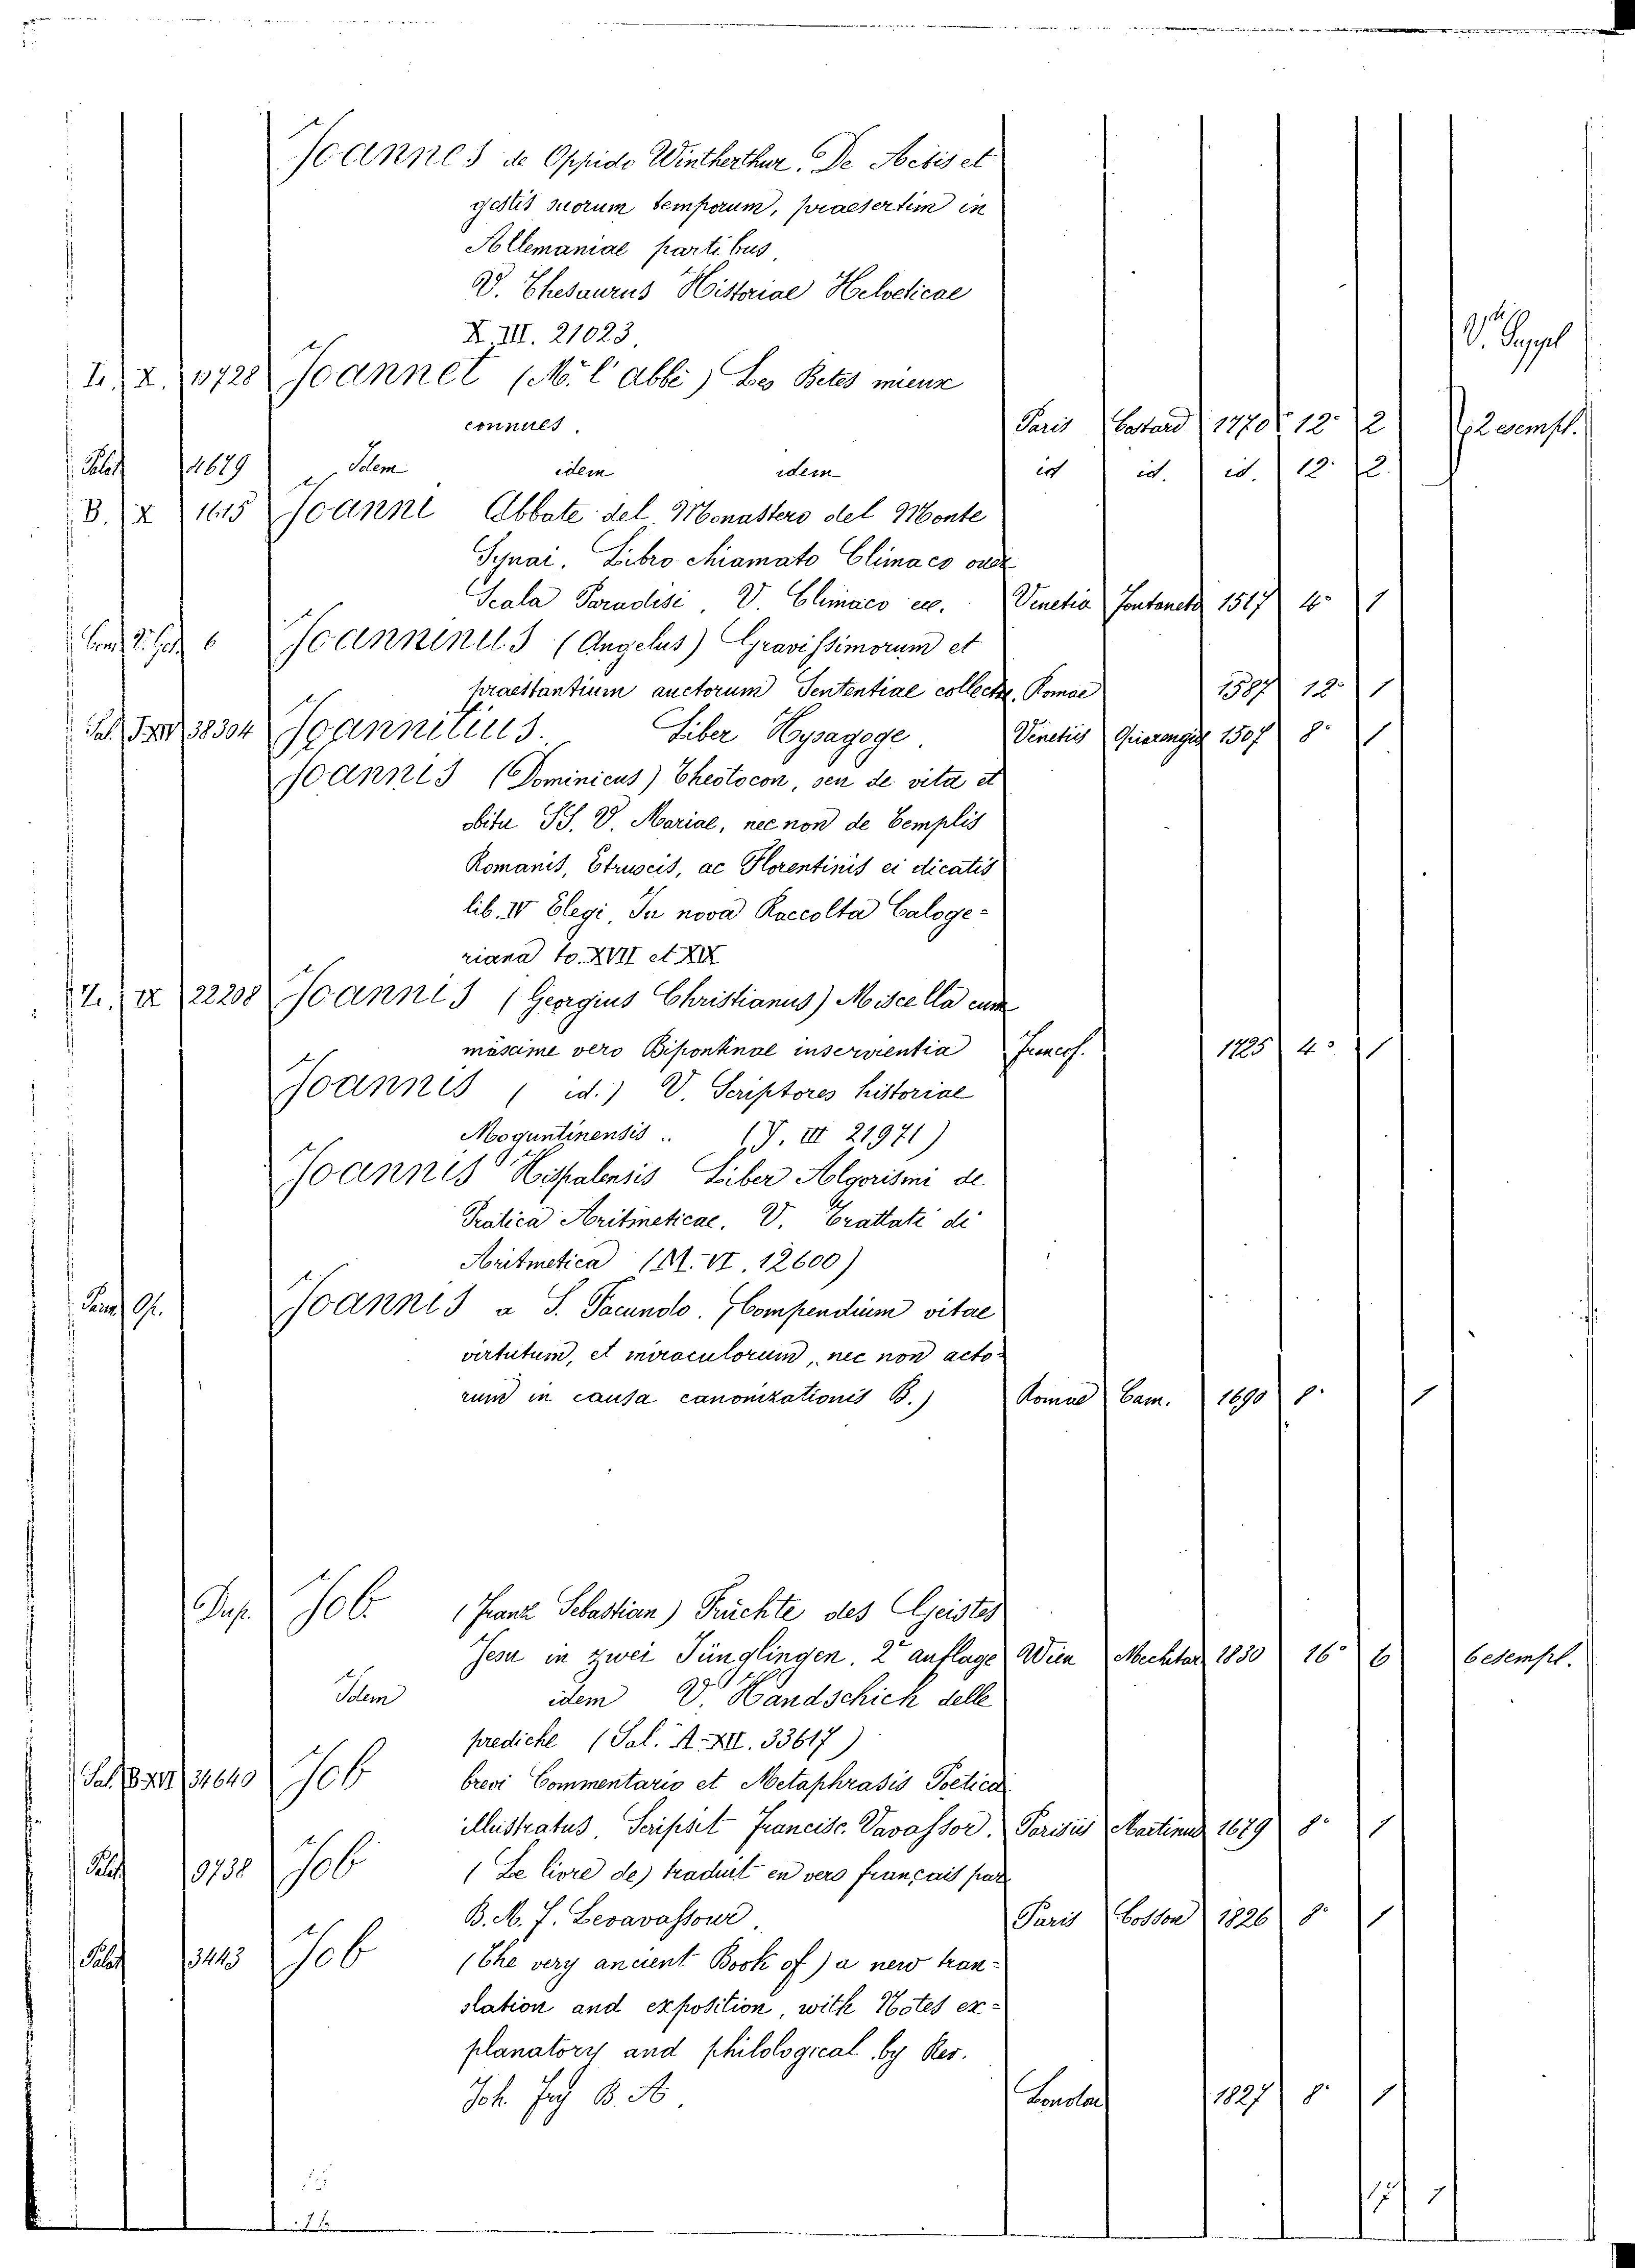 Joannes de Oppido Wintherthur. De Actis et
gestis suorum temporum, praesertim in
Allemaniae partibus,
V. Thesaurus Historiae Helveticae
X. III. 21023.
V. Suppl
I. X. 10728 Joannet (Mr. l'abbé) Les Betes mieux
connues. Paris Costard 1770 12° 2 2 esempl.
Palat 14679 Idem idem idem id id. id. 12° 2.
B. X 1615 Joanni Abbate del Monastero del Monte
Synai. Libro chiamato Climaco over
Scala Paradisi, V. Climaco ec. Venetia Fontaneto 1517 4° 1
6 Joanninus (Angelus) Gravissimorum et
praestantium auctorum Sententiae collectae. Romae 1587 12° 1
Sal. 38304 Joannitius. Liber Hysagoge. Venetiis Quarengis 1507 8° 1
Joannis (Dominicus) Theotocon, seu de vita et
obitu SS. V. Mariae, nec non de templis
Romanis, Etruscis, ac Florentinis ei dicatis
lib. IV Elegi. In nova Raccolta Caloge-
riana to. XVII et XIX
Z. IX 22208 Joannis (Georgius Christianus) Miscella cum
maxime vero Bipontinae inservientia Francof. 1725 4° 1
Joannis (id.) V. Scriptores historiae
Moguntinensis .. (V. III 21971)
Joannis Hispalensis Liber Algorismi de
Pratica Aritmeticae. V. Trattati di
Aritmetica (M. VI. 12600)
Joannis a S. Facundo. (Compendium vitae
virtutum, et miraculorum, nec non acto-
rum in causa canonizationis B.) Romae Cam. 1690 8° 1
Dup. Job (Franz Sebastian) Früchte des Geistes
Jesu in zwei Jünglingen. 2e auflage Wien Mechitar 1830 16° 6 6 esempl.
Idem idem V. Handschick delle
prediche (Sal. A. XII. 33617)
Sal. B. XVI 34640 Job brevi Commentario et Metaphrasis Poetica
illustratus. Scripsit Francisc. Vavassor. Parisiis Martinus 1679 8° 1
Palat 9738 Job (Le livre de) traduit en vers français par
B. M. F. Levavasseur. Paris Cosson 1826 8° 1
Palat 13443 Job (The very ancient Book of) a new tran-
slation and exposition, with Notes ex-
planatory and philological by Rev.
Joh. Fry B. A. London 1827 8° 1
17 1